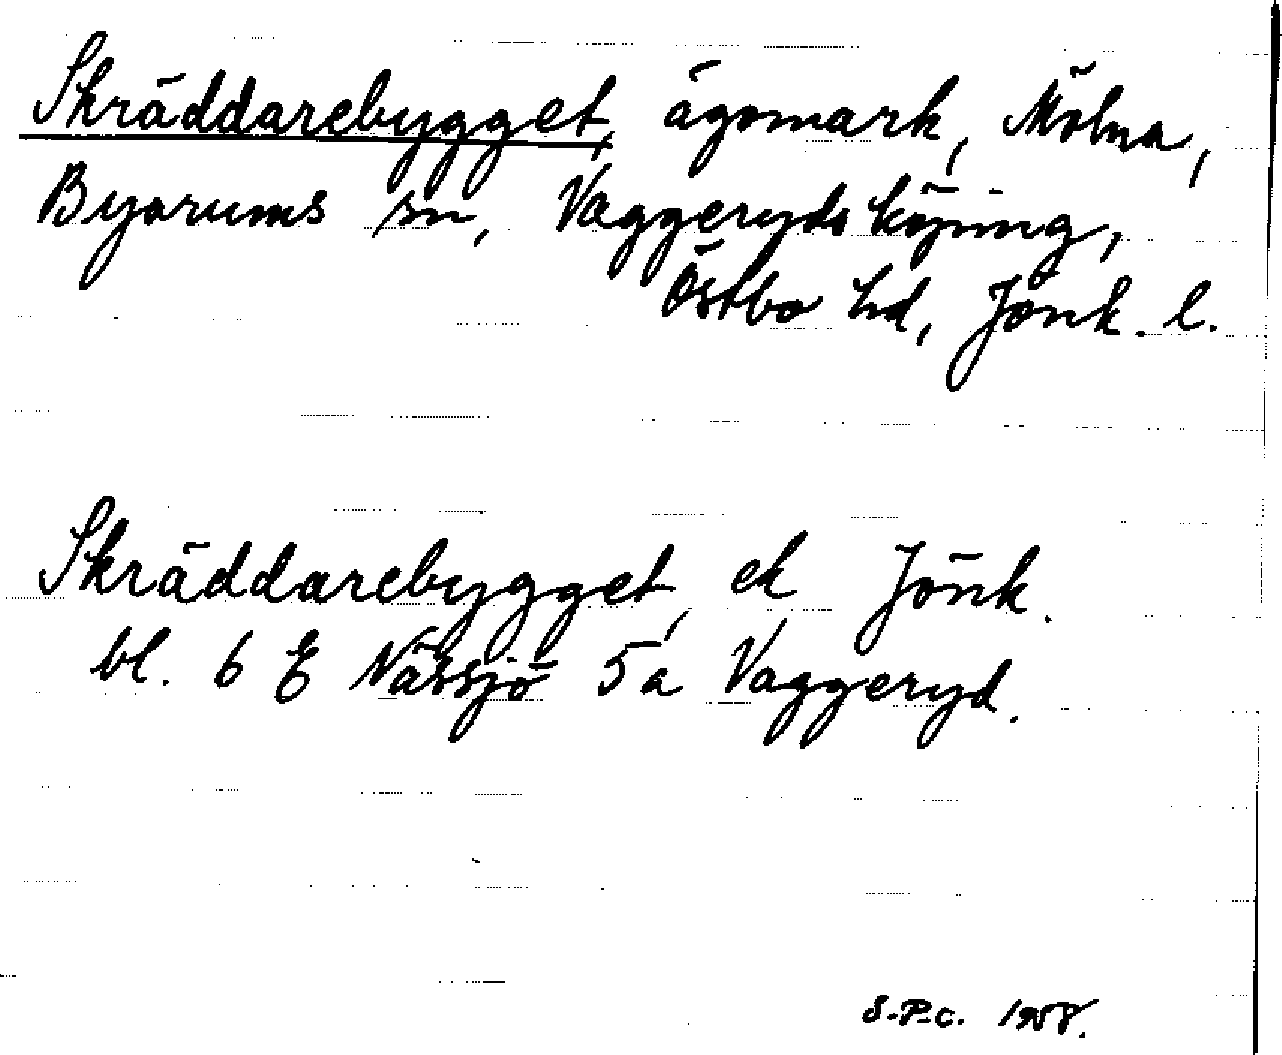 Skräddarebygget, ägomark, Mölna,
Byarums sn, Vaggeryds köping,
Östbo hd, Jönk. l.
Skräddarebygget, ek Jönk.
bl. 6 E Nässjö 5a Vaggeryd.
S-P-c. 1958.